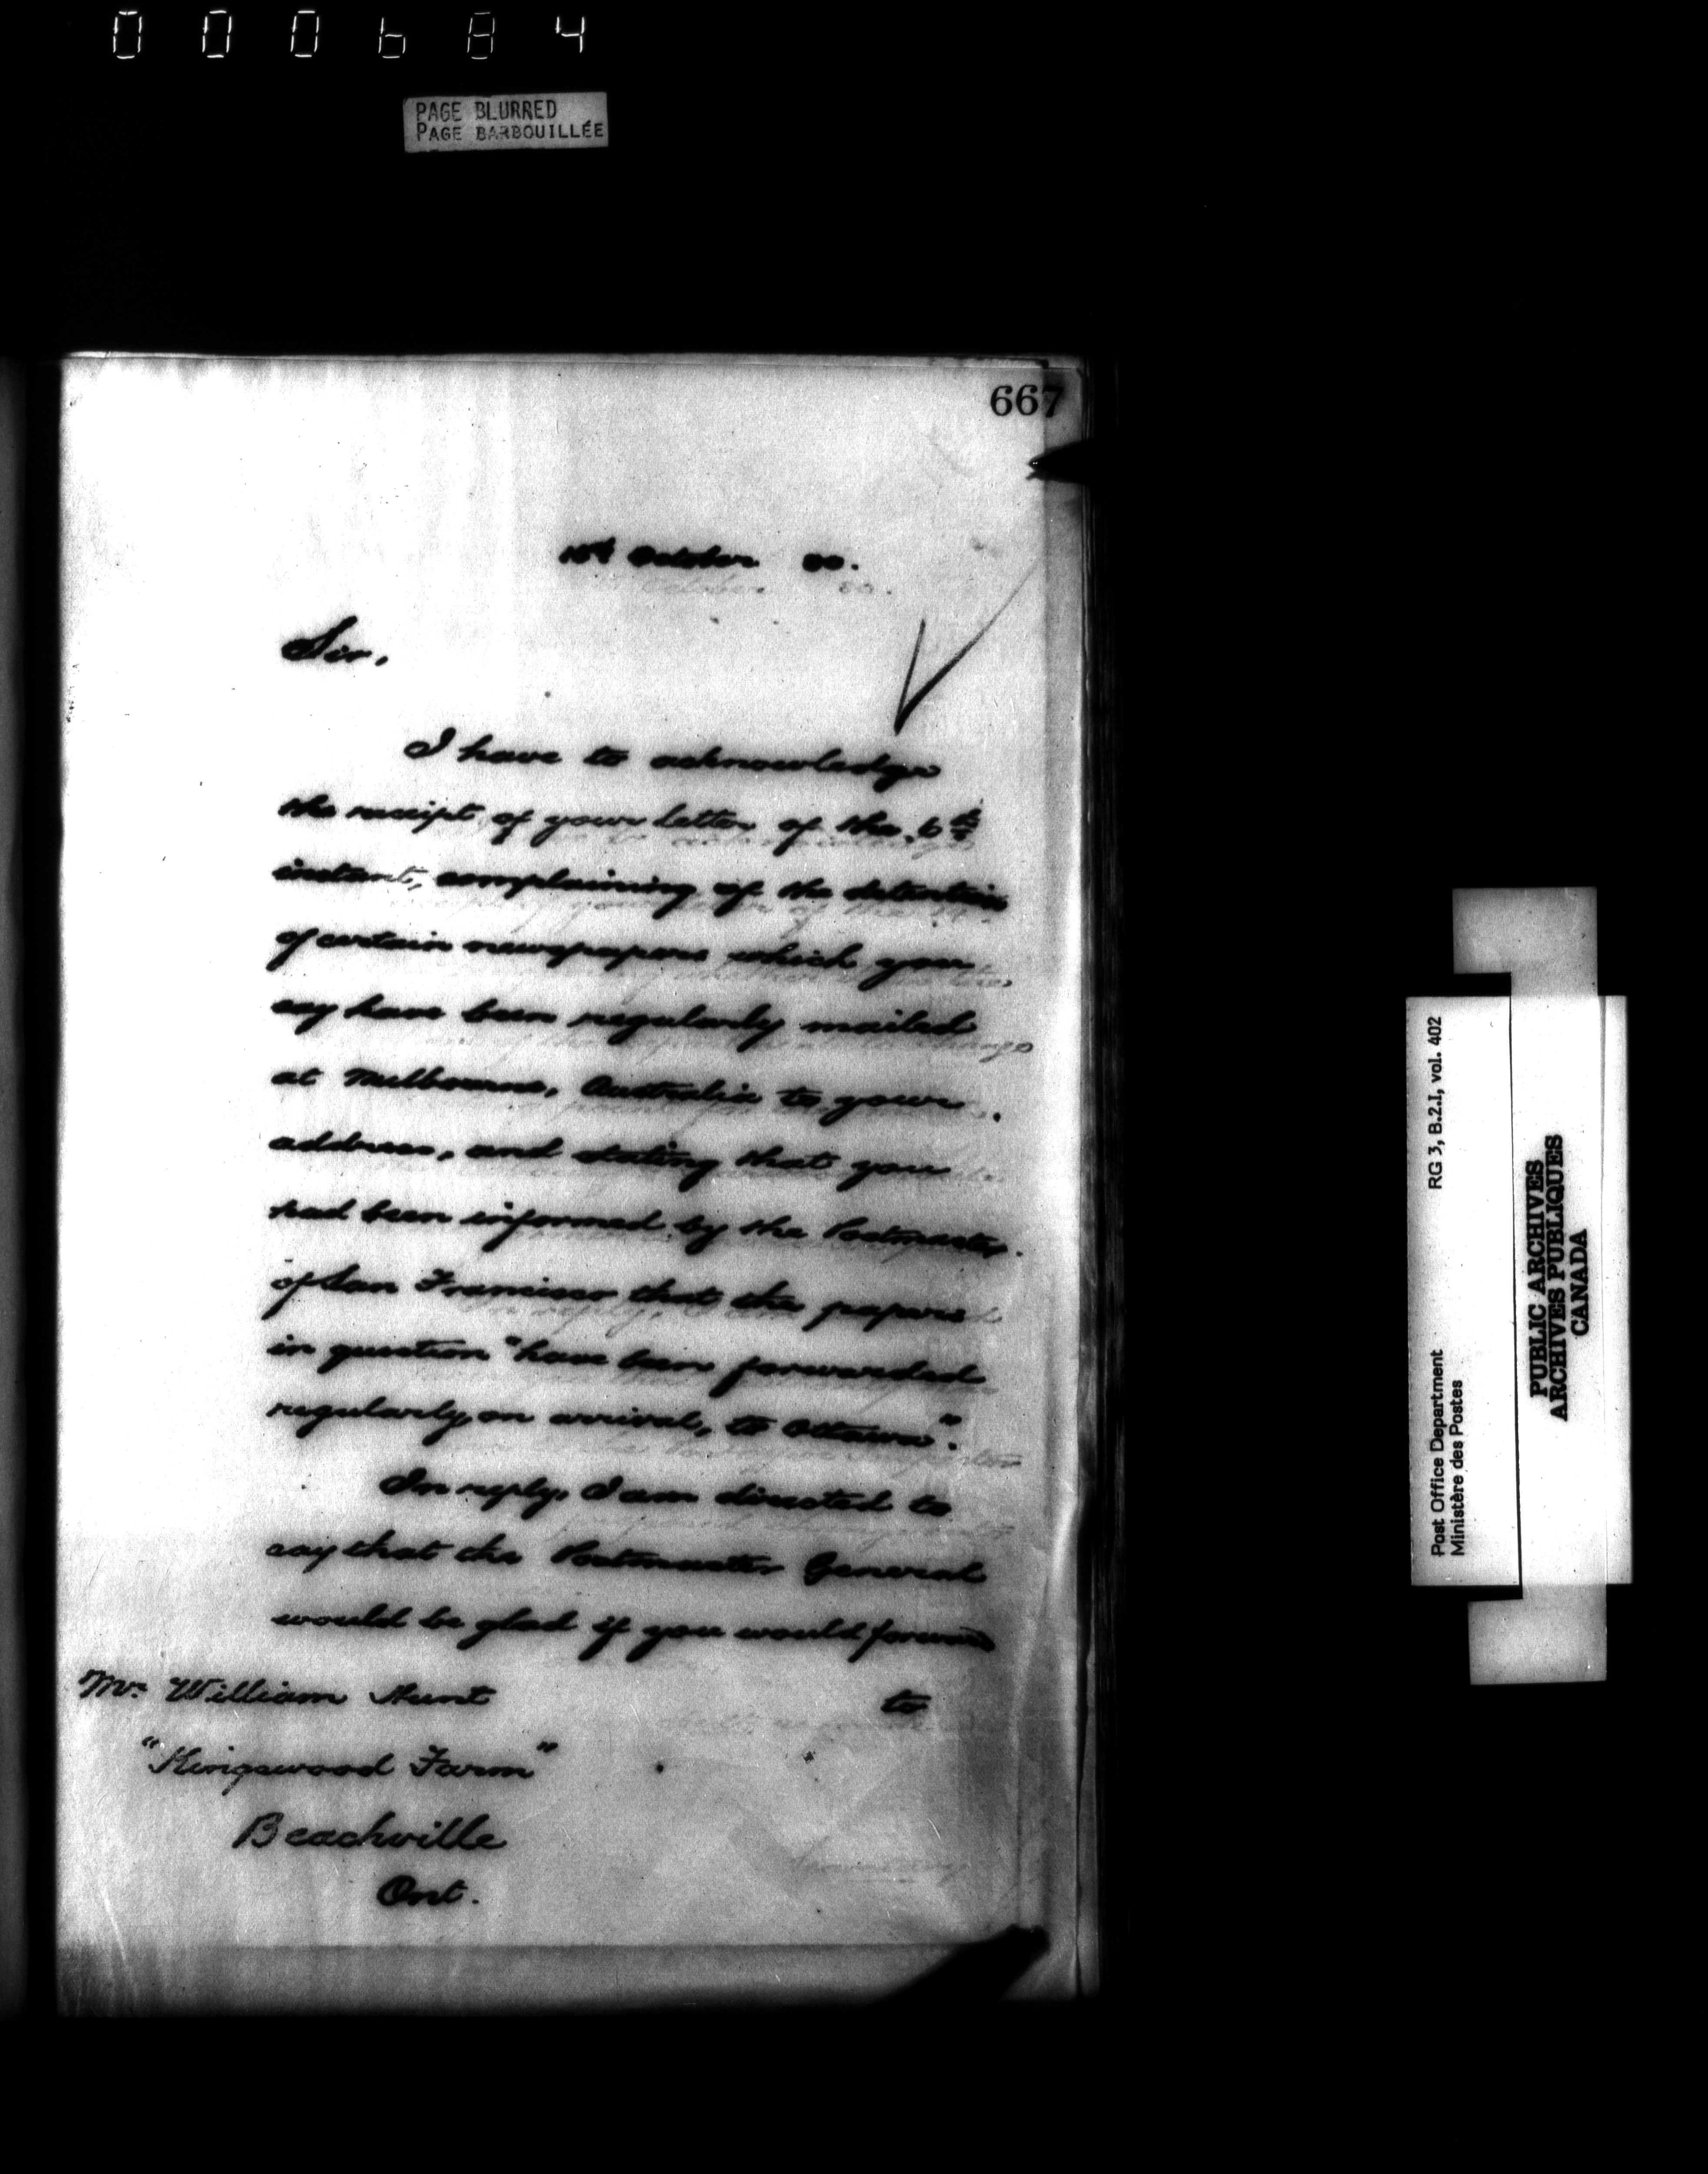 000684
PAGE BLURRED
PAGE BARBOUILLÉE
667
October 80.
Sir,
I have to acknowledge
the receipt of your letter of the 6th
instant, complaining of the detention
of certain newspapers which you
say have been regularly mailed
at Melbourne, Australia to your
address, and stating that you
had been informed by the Postmaster
of San Francisco that the papers
in question "have been forwarded
regularly, on arrival, to Ottawa".
In reply, I am directed to
say that the Postmaster General
would be glad if you would forward
to
Mr. William Hunt
"Kingswood Farm"
Beachville
Ont.
Post Office Department
Ministère des Postes
RG 3, B.2.I, vol. 402
PUBLIC ARCHIVES
ARCHIVES PUBLIQUES
CANADA